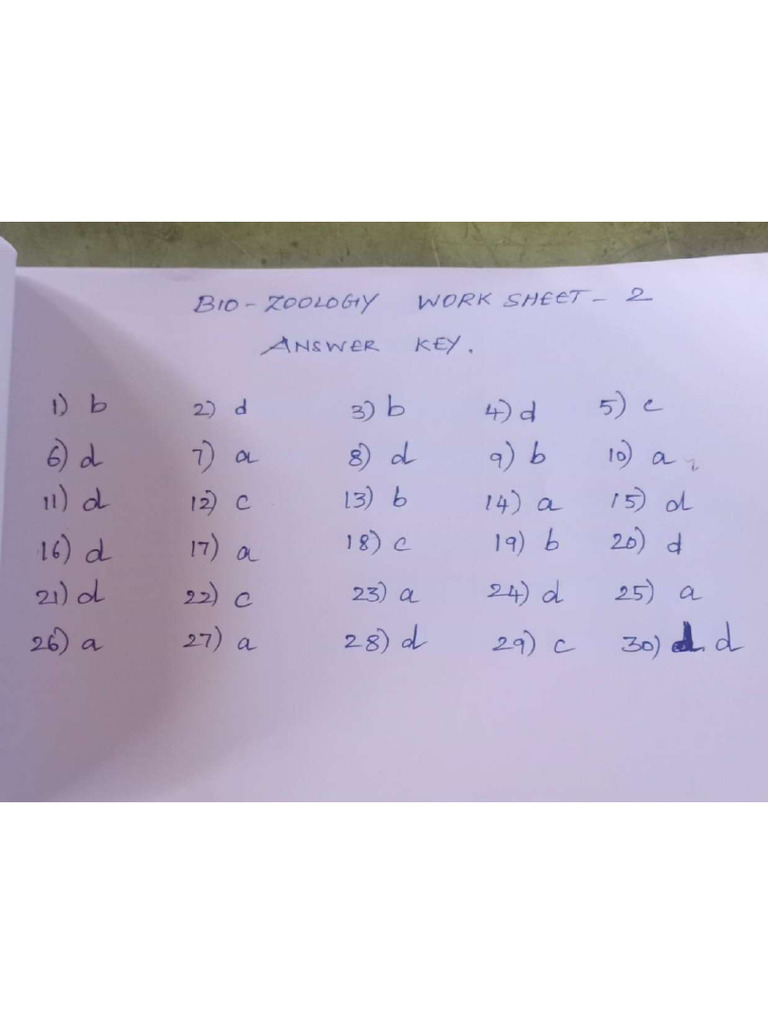 BIO - ZOOLOGY WORK SHEET - 2
ANSWER KEY.
1) b 2) d 3) b 4) d 5) c
6) d 7) a 8) d 9) b 10) a
11) d 12) c 13) b 14) a 15) d
16) d 17) a 18) c 19) b 20) d
21) d 22) c 23) a 24) d 25) a
26) a 27) a 28) d 29) c 30) d. d